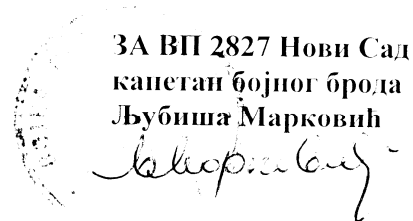 ЗА ВП 2827 Нови Сад
капетан бојног брода
Љубиша Марковић